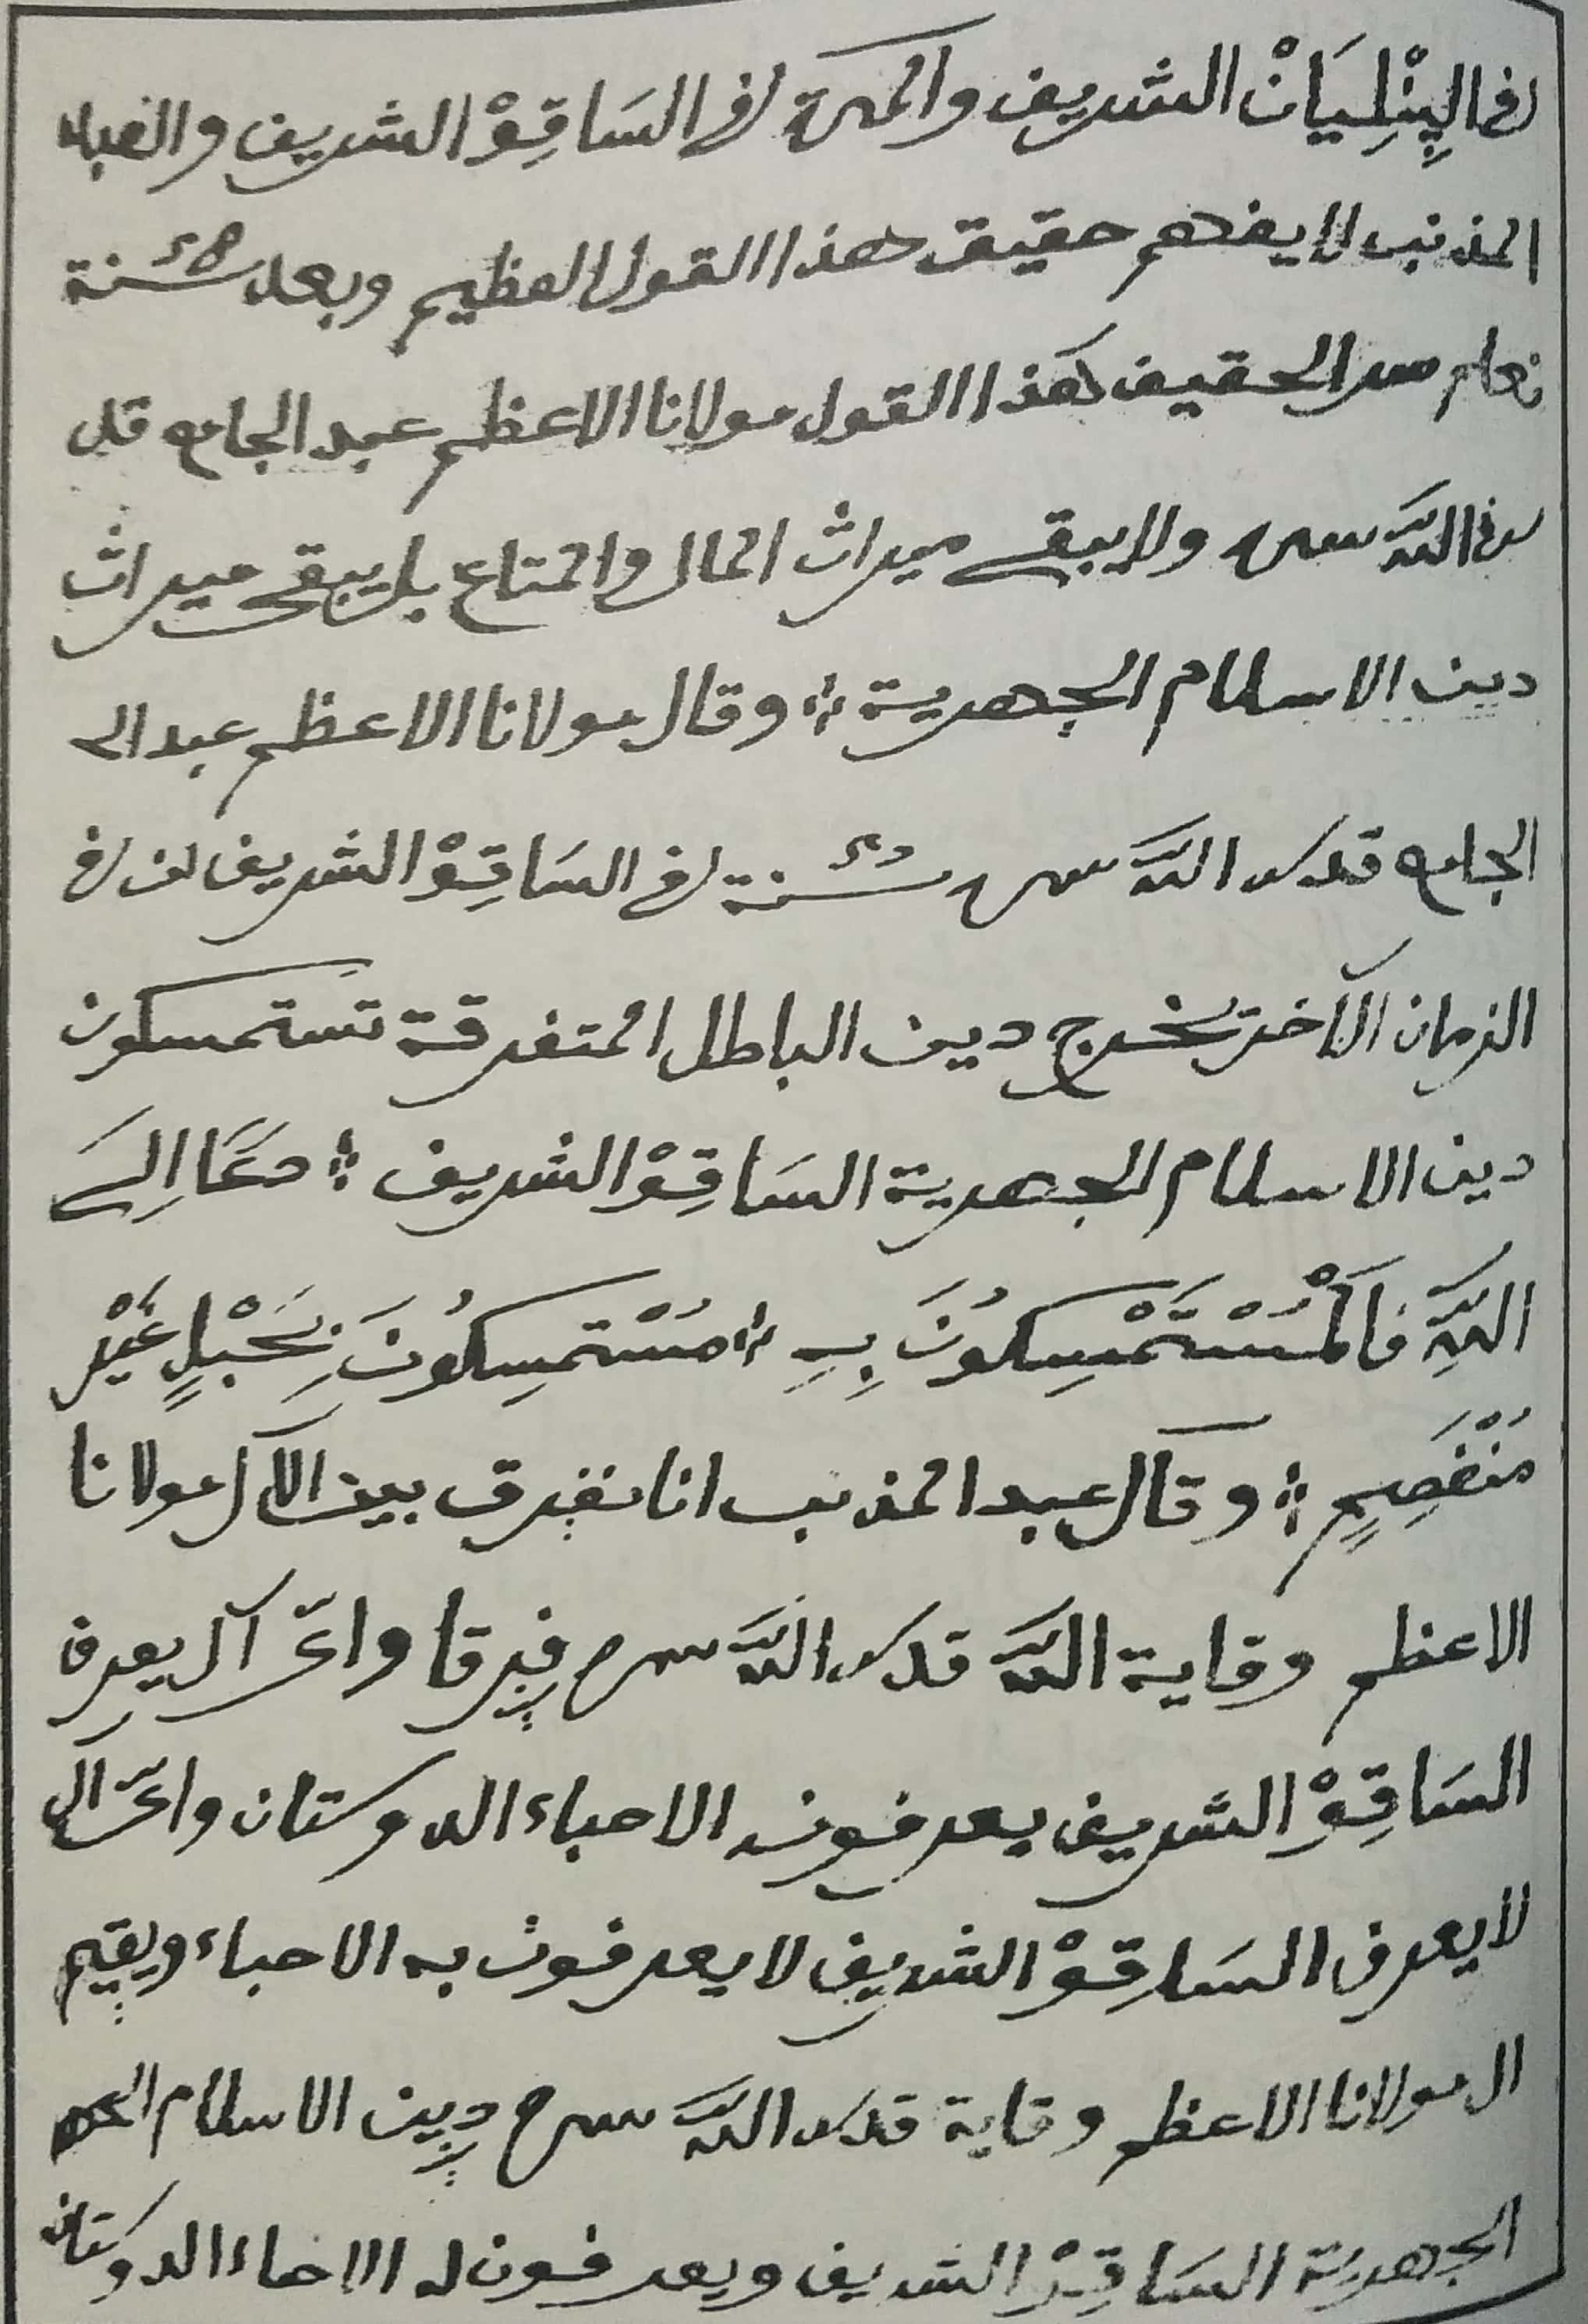 في البِنْلِيَانْ الشريف والمرة في الساقِوْ الشريف والعبد
المذنب لا يفهم حقيق هذا القول العظيم وبعد سنة
نعلم الحقيق هذا القول مولانا الاعظم عبد الجامع قد
الله سره ولا يبقى ميراث المال والمتاع بل يبقى ميراث
دين الاسلام الجهرية ؞ وقال مولانا الاعظم عبد ال
الجامع قدس الله سره سنة في السَاقِوْ الشريف لن في
الزمان الآخر تخرج دين الباطل المتفرقة تستمسكون
دين الاسلام الجهرية السَاقِوْ الشريف ؞ دَعَا اِلَى
اللهِ فَالْمُسْتَمْسِكُونَ بِهِ ؞ مُسْتَمْسِكُونَ بِحَبْلٍ غَيْرِ
مُنْفَصِمٍ ؞ وقال عبد المذنب انا نفرق بين الآل مولانا
الاعظم وقاية الله قدس الله سره فرقا واىّ آل يعرف
السَاقِوْ الشريف يعرفونه الاحباء الدوستان واىّ آل
لا يعرف السَاقِوْ الشريف لا يعرفون به الاحباء ويقيم
ال مولانا الاعظم وقاية قدس الله سره دين الاسلام
الجهرية السَاقِوْ الشريف ويعرفون له الاحباء الدوستان